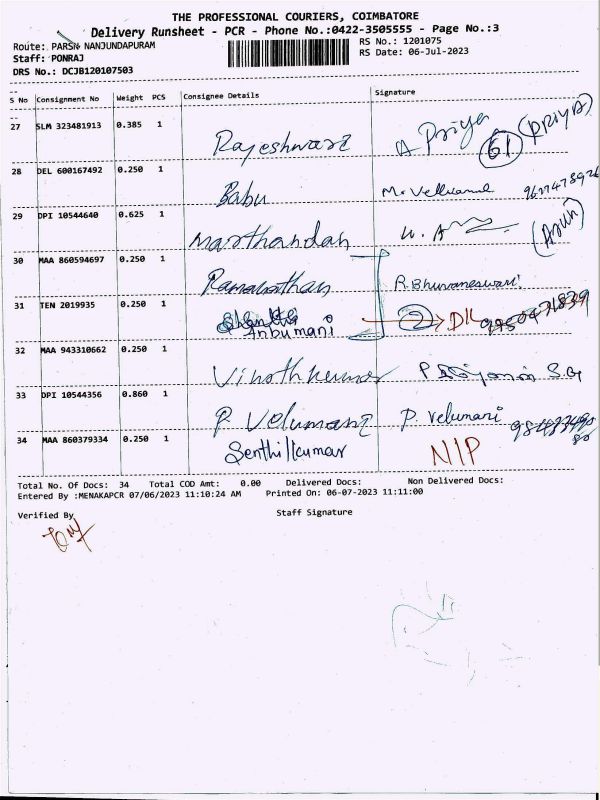 THE PROFESSIONAL COURIERS, COIMBATORE
Delivery Runsheet - PCR - Phone No.:0422-3505555 - Page No.:3
Route: PARSN NANJUNDAPURAM
RS No.: 1201075
Staff: PONRAJ
RS Date: 06-Jul-2023
DRS No.: DCJB120107503
S No Consignment No Weight PCS Consignee Details Signature
27 SLM 323481913 0.385 1 Rajeshwari A Priya 61 (PRIYA)
28 DEL 600167492 0.250 1 Babu
29 DPI 10544640 0.625 1 Marthandan (Arun)
30 MAA 860594697 0.250 1 Ramanathan R. Bhuvaneswari
31 TEN 2019935 0.250 1 Anbumani 2 DIL
32 MAA 943310662 0.250 1 Vinothkumar
33 DPI 10544356 0.860 1 P. Velumani P. Velumani
34 MAA 860379334 0.250 1 Senthilkumar NIP
Total No. Of Docs: 34 Total COD Amt: 0.00 Delivered Docs: Non Delivered Docs:
Entered By :MENAKAPCR 07/06/2023 11:10:24 AM Printed On: 06-07-2023 11:11:00
Verified By Staff Signature